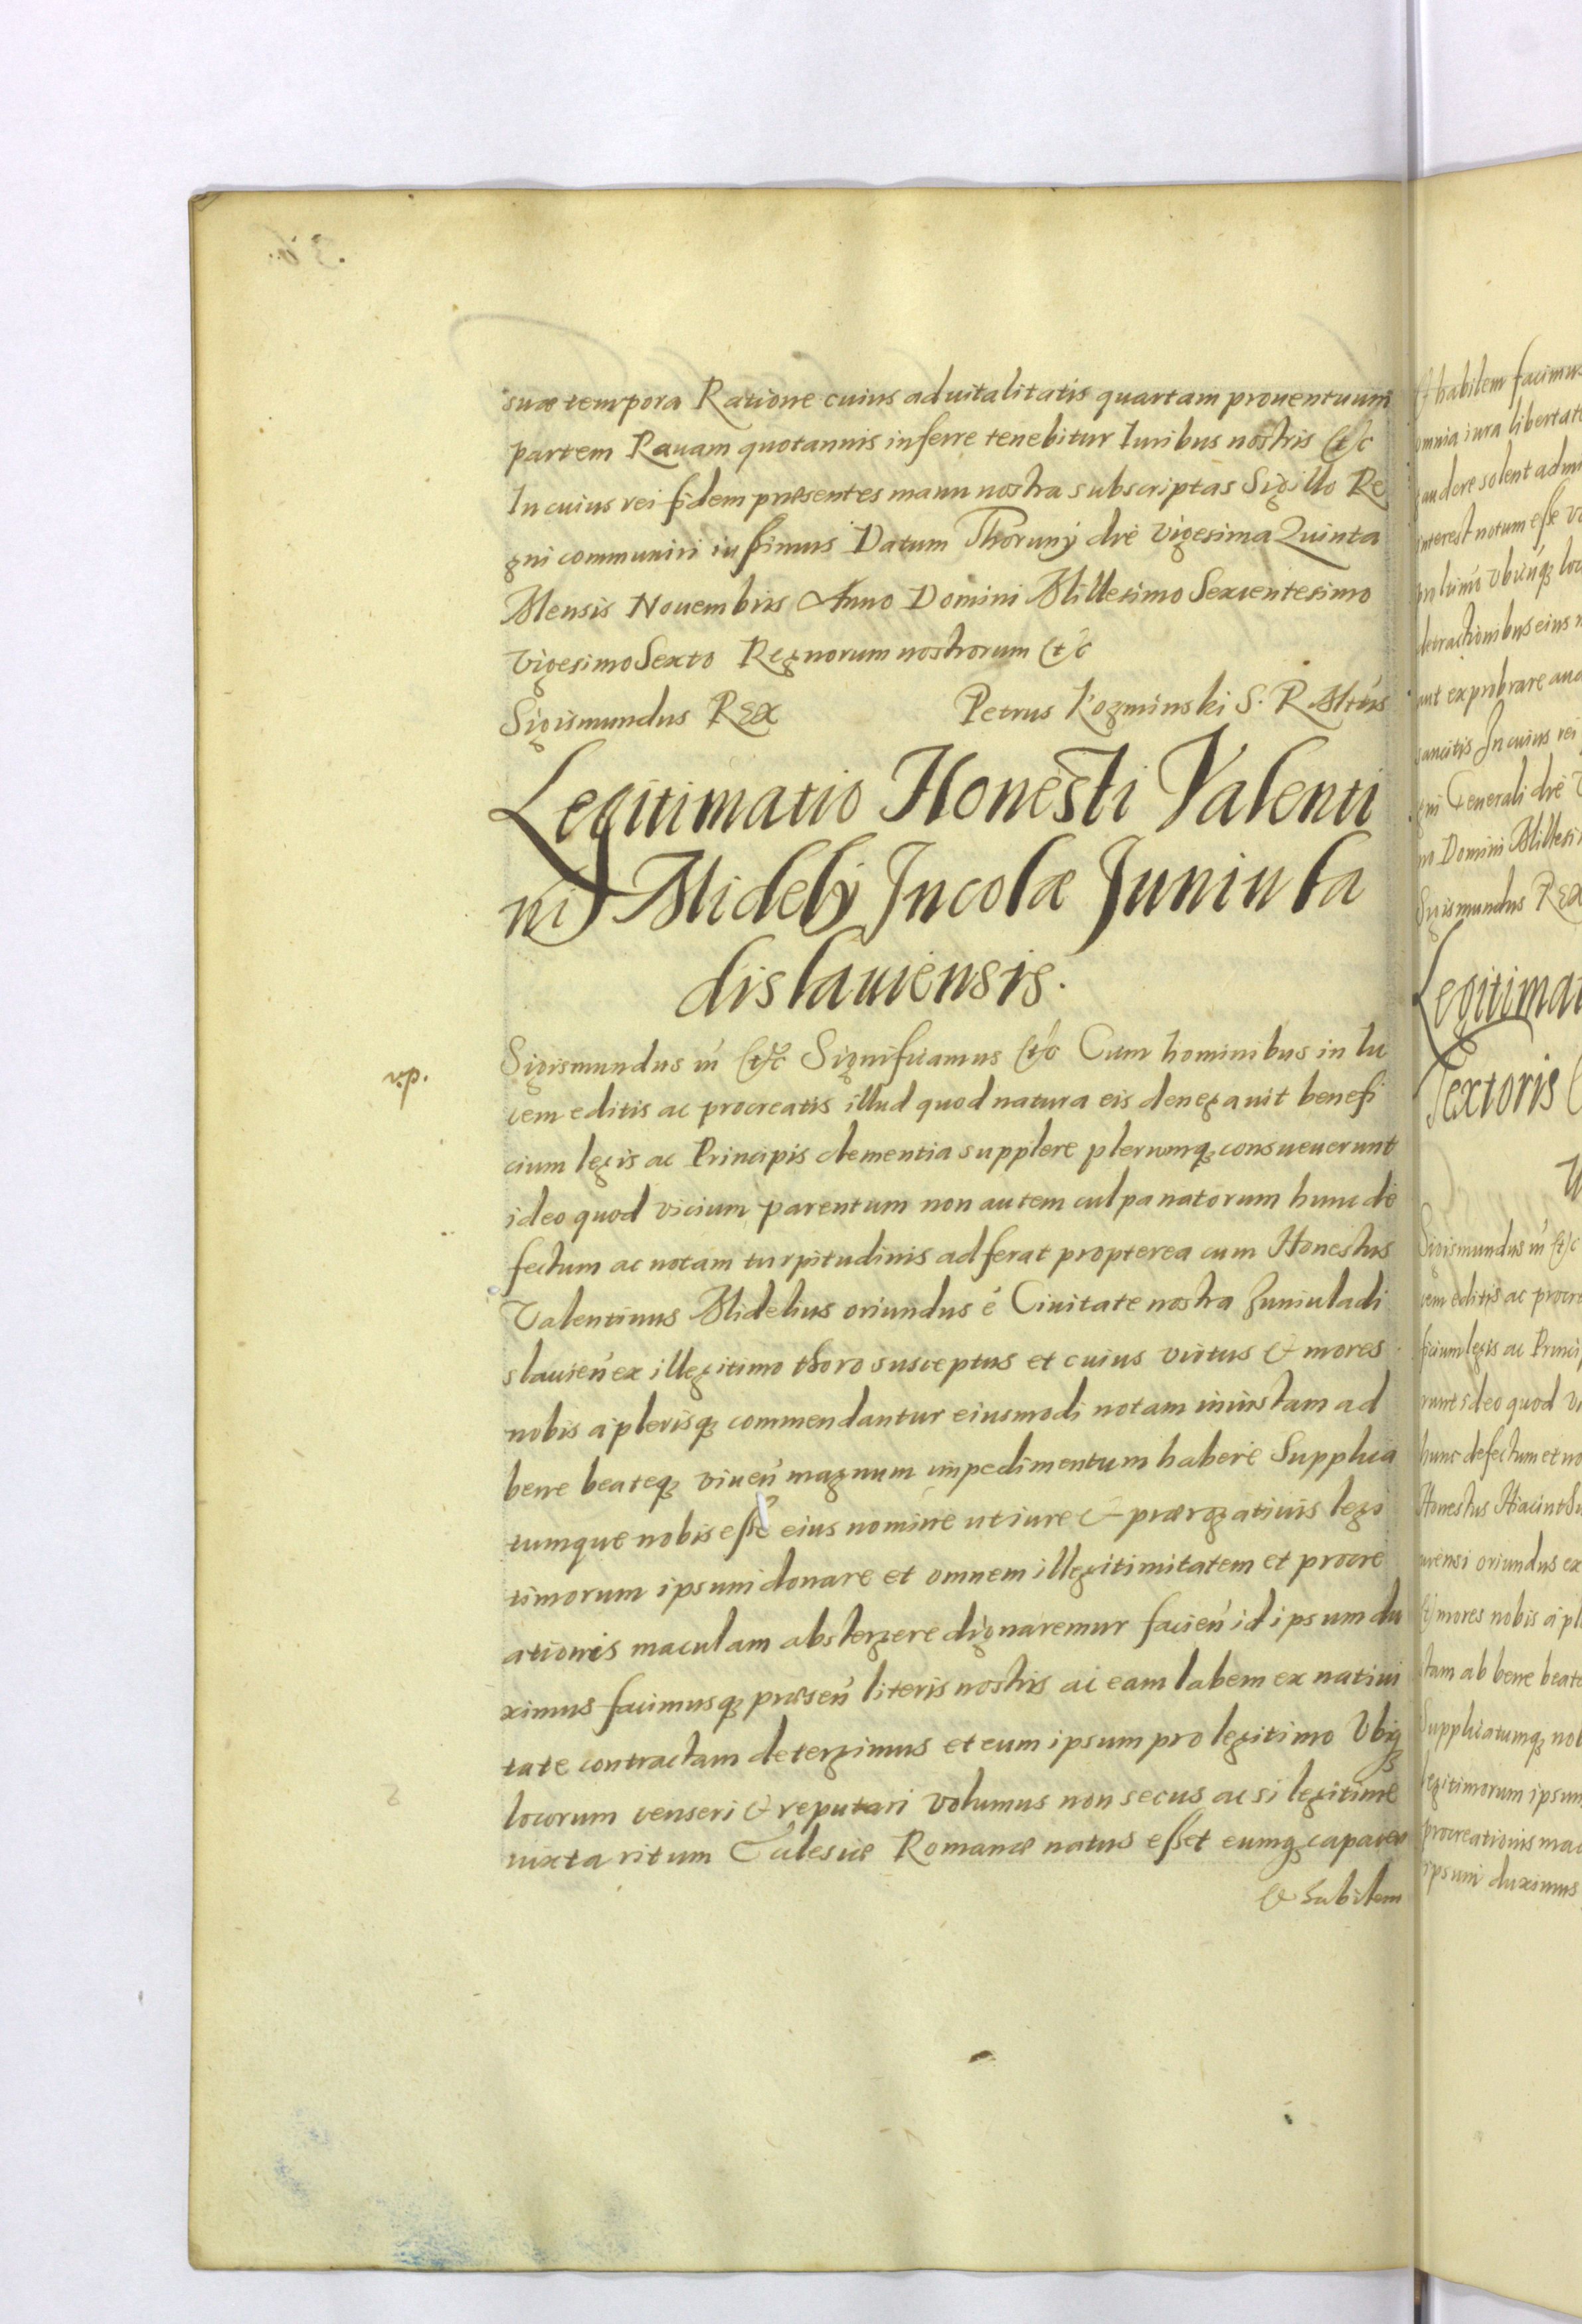 suæ tempora Ratione cuius aduitalitatis quartam prouentuum
partem Rauam quotannis inferre tenebitur Iuribus nostris etc
In cuius rei fidem præsentes manu nostra subscriptas Sigillo Re
gni communiri iussimus Datum Thorunÿ die Vigesima Quinta
Mensis Nouembris Anno Domini Millesimo Sexcentesimo
Vigesimo Sexto Regnorum nostrorum etc
Sigismundus REX Petrus Kozminski S. R. Mtis
Legitimatio Honesti Valenti
ni Midelÿ Incolæ Juniula
dislauiensis.
v.p.
Sigismundus iii etc Significamus etc Cum hominibus in lu
cem editis ac procreatis illud quod natura eis denegauit benefi
cium legis ac Principis clementia supplere plerumq; consueuerunt
ideo quod vicium parentum non autem culpa natorum hunc de
fectum ac notam turpitudinis adferat propterea cum Honestus
Valentinus Midelius oriundus é Ciuitate nostra Juniuladi
slauien ex illegitimo thoro susceptus et cuius virtus & mores
nobis a plerisq; commendantur eiusmodi notam iniustam ad
bene beateq; viuen magnum impedimentum habere Supplica
tumque nobis esse eius nomine ut iure & prærogatiuis legi
timorum ipsum donare et omnem illegitimitatem et procre
ationis maculam abstergere dignaremur facien id ipsum du
ximus facimusq; præsen literis nostris ac eam labem ex natiui
tate contractam detergimus et eum ipsum pro legitimo Vbiq;
locorum censeri & reputari volumus non secus ac si legitime
iuxta ritum Eclesiæ Romanæ natus esset eumq; capacem
& habilem
& habilem facimus
omnia iura libertat
gaudere solent adm
interest notum esse vo
detractionibus eius n
aut exprobrare aud
sancitis In cuius rei
gni Generali die V
no Domini Millesi
Sigismundus REX
Legitimat
Textoris
Sigismundus iii etc
cem editis ac procre
ficium legis ac Princip
runt ideo quod vi
hunc defectum et no
Honestus Hiacinthu
uiensi oriundus ex
& mores nobis a pl
stam ab bene beate
Supplicatumq; nob
legitimorum ipsum
procreationis mac
ipsum duximus